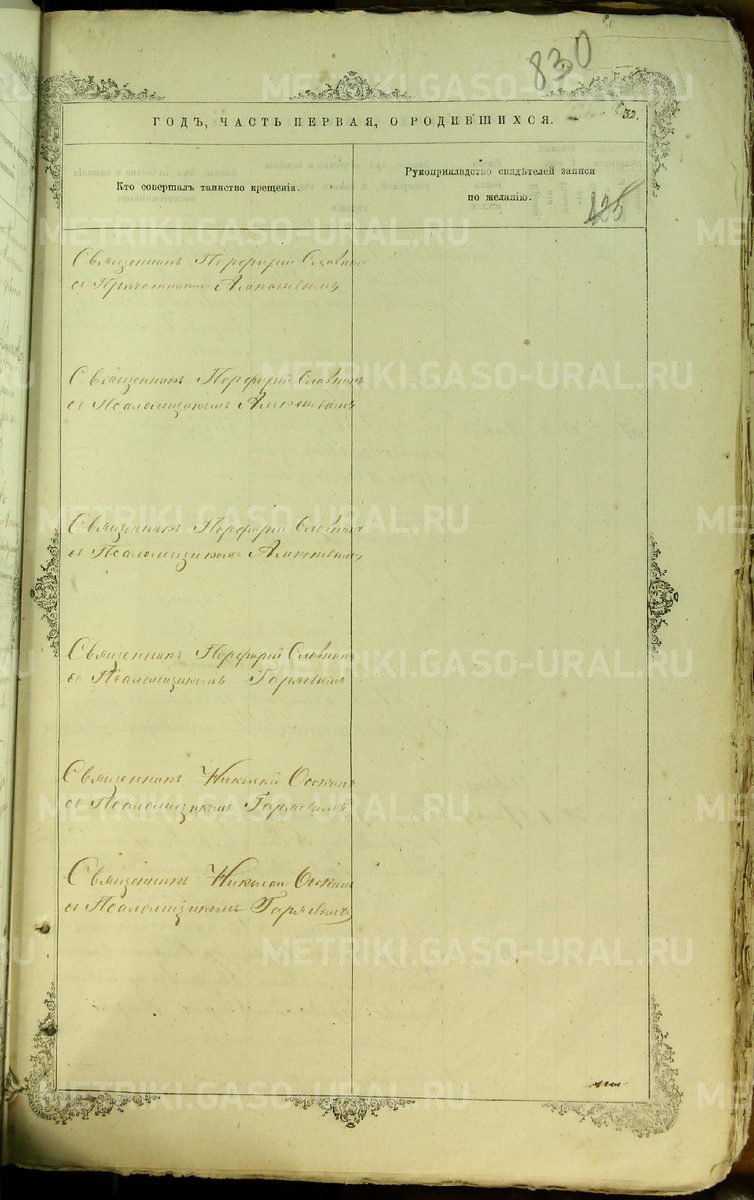 830
ГОДЪ, ЧАСТЬ ПЕРВАЯ, О РОДИВШИХСЯ.
32.
Кто совершалъ таинство крещенія.
Рукоприкладство свидѣтелей записи
по желанію.
425
Священникъ Порфирій
съ Причетникомъ
Священникъ Порфирій
съ Псаломщикомъ
Священникъ Порфирій
съ Псаломщикомъ
Священникъ Порфирій
съ Псаломщикомъ Горяевымъ
Священникъ Николай Оскинъ
съ Псаломщикомъ Горяевымъ
Священникъ Николай Оскинъ
съ Псаломщикомъ Горяевымъ
METRIKI.GASO-URAL.RU